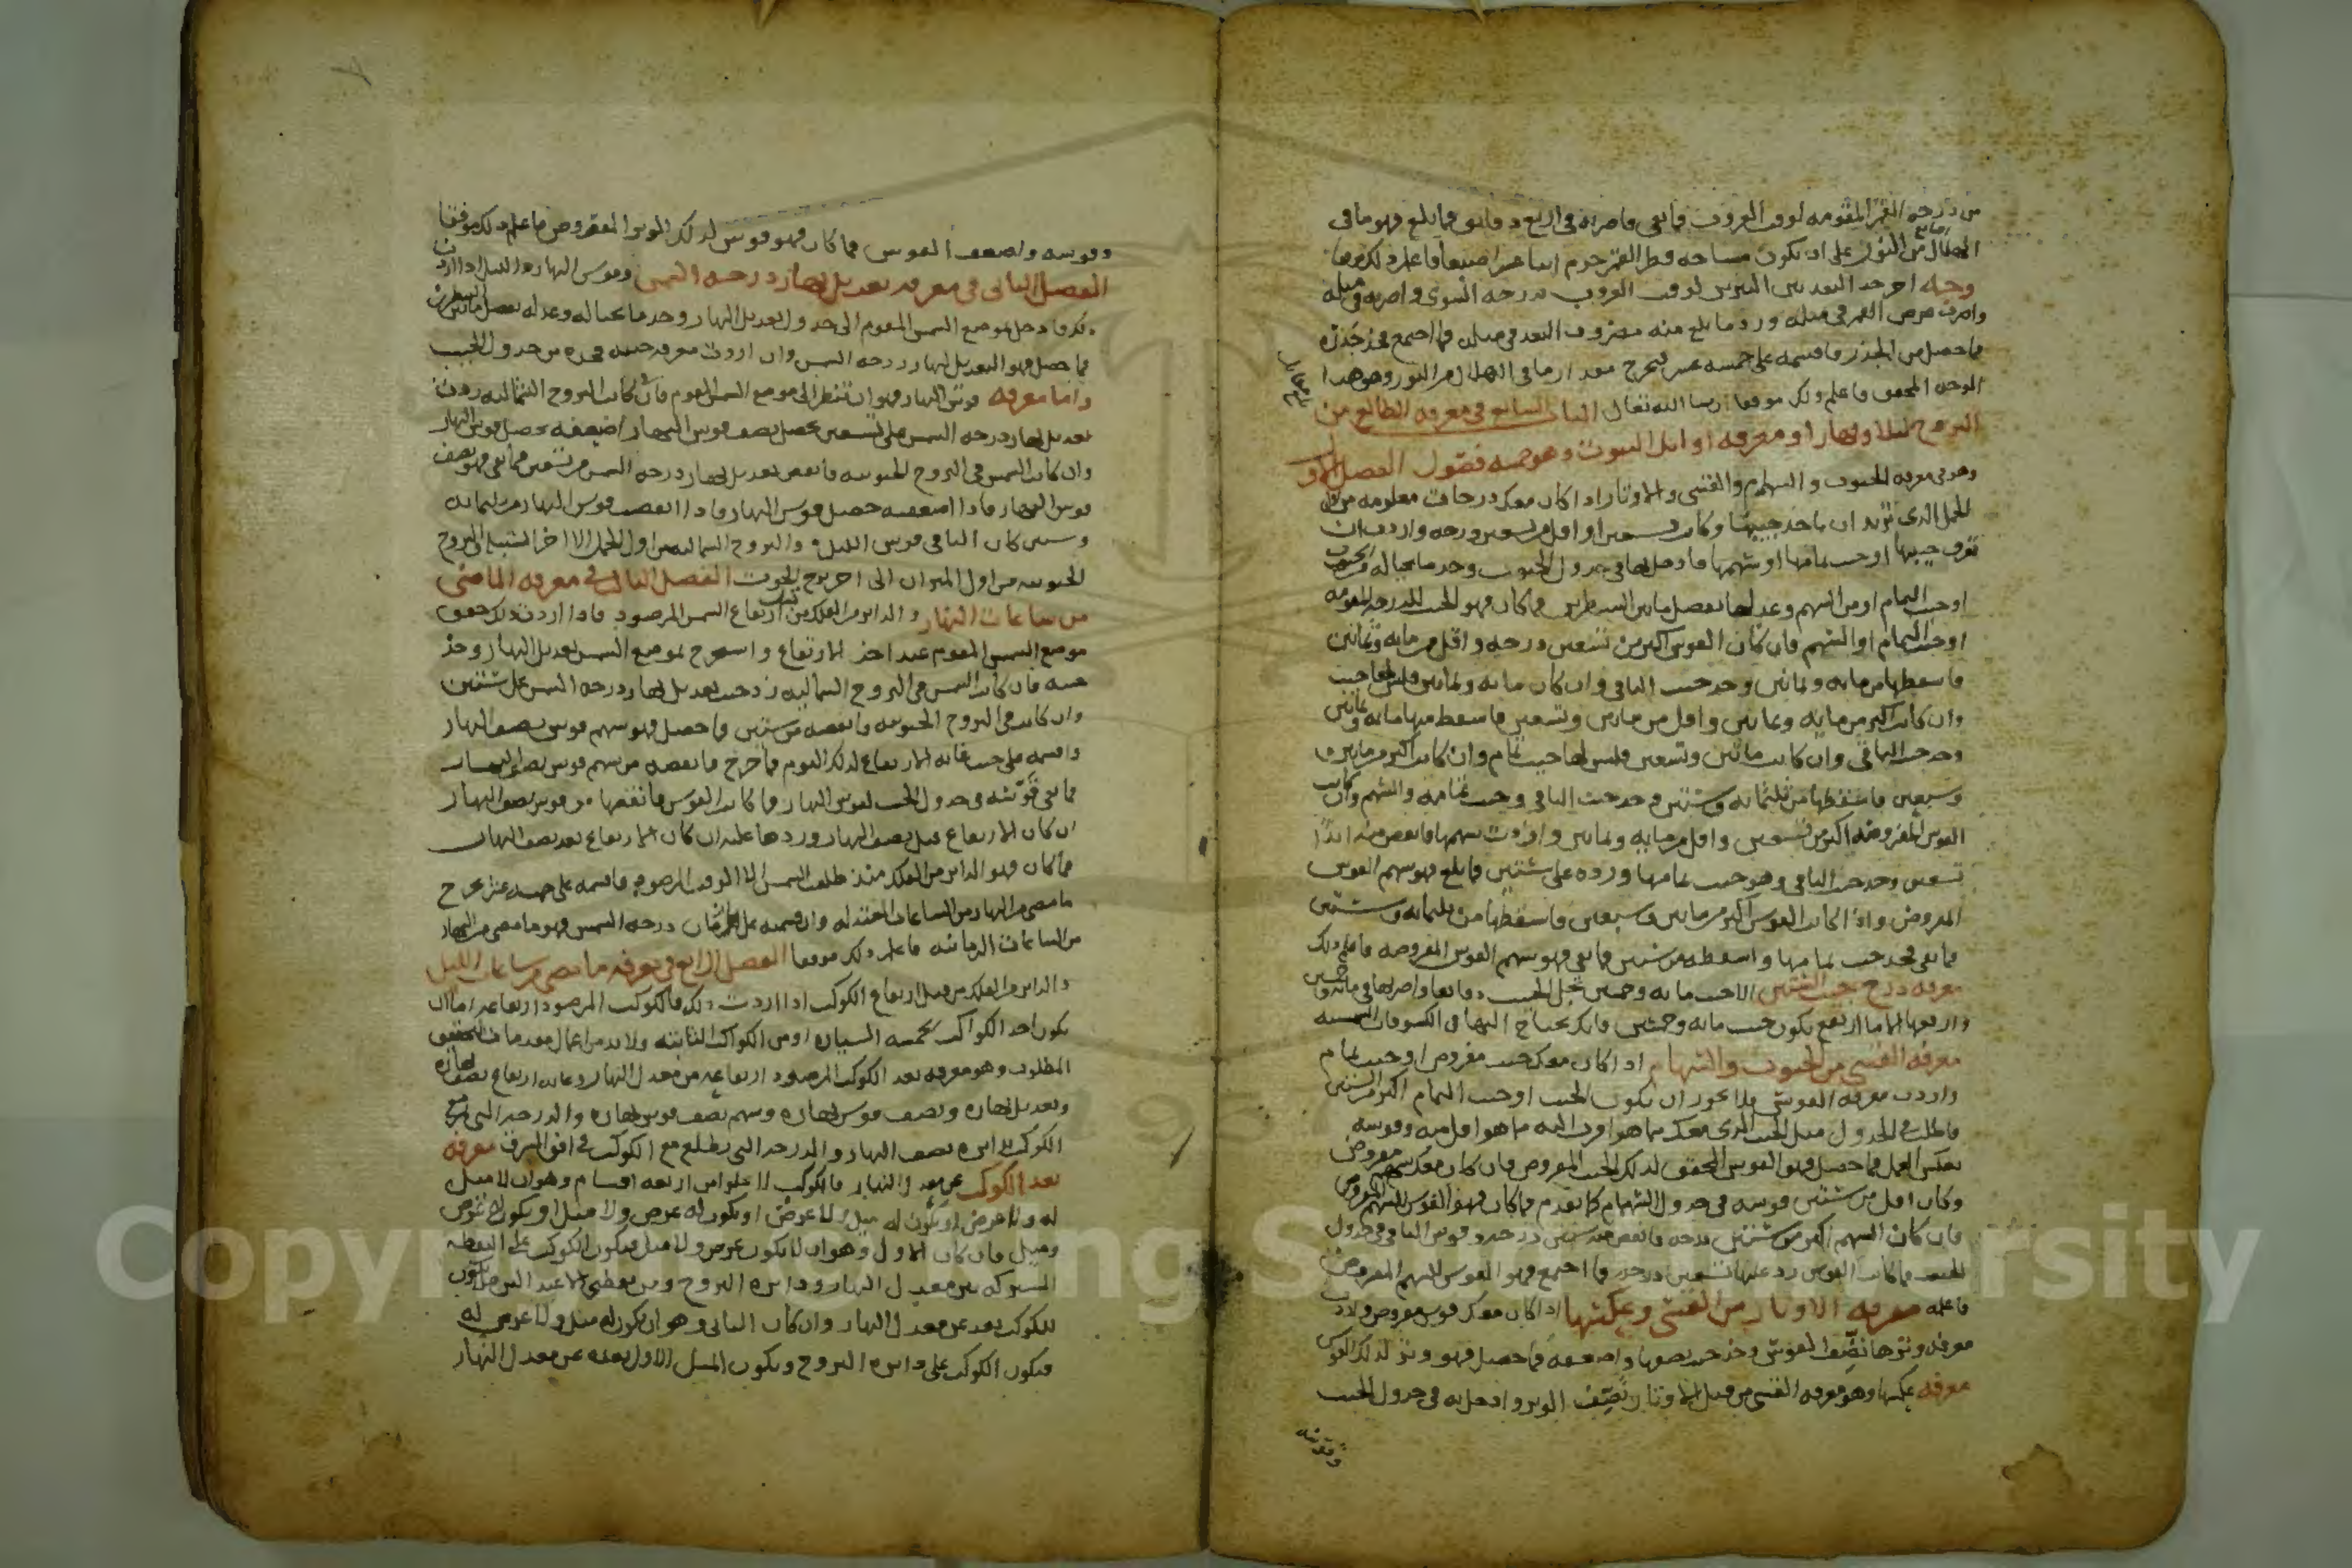 من درجه القمر المقومه لوقت الغروب فما بقى فاضربه في اربع دقائق فما بلغ فهو ما في
الهلال من النور على ان تكون مساحه قطر القمر جرم اثنا عشر اصبعا فاعلم ذلك
وجه اخر خذ البعد بين النيرين لوقت الغروب بدرجه السوى واضربه في مثله
واضرب عرض القمر في مثله وزد ما بلغ منه مضروب البعد في مثله فما اجتمع فخذ جذره
فما حصل من الجذر فاقسمه على خمسه عشر فيخرج مقدار ما في الهلال من النور وهو هذا
الوجه المحقق فاعلم ذلك موفقا ان شا الله تعالى الباب السابع في معرفه الطالع من
البروج ليلا ونهارا ومعرفه اوائل البيوت وهو خمسه فصول الفصل الاول
وهو في معرفه الجيوب والسهام والقسى والاوتار اذا كان معك درجات معلومه من اول
الحمل الذي تريد ان تاخذ جيبها وكانت تسعين او اقل من تسعين درجه واردت ان
تعرف جيبها او جيب تمامها او سهمها فادخل بها في جدول الجيوب وخذ ما بحياله من الجيوب
او جيب التمام او من السهم وعدلها بفضل ما بين السطرين فما كان فهو الجيب للدرجه المقومه
او جيب التمام او السهم فان كان القوس اكثر من تسعين درجه واقل من مايه وثمانين
فاسقطها من مايه وثمانين وخذ جيب الباقي وان كان مايه وثمانين فليس لها جيب
وان كانت اكثر من مايه وثمانين واقل من مايتين وسبعين فاسقط منها مايه وثمانين
وخذ جيب الباقي وان كانت مايتين وسبعين فليس لها جيب تمام وان كانت اكثر من مايتين و
وسبعين فاسقطها من ثلثمايه وستين وخذ جيب الباقي وجيب تمامه والسهم وان كانت
القوس المفروضه اكثر من تسعين واقل من مايه وثمانين واردت سهمها فانقص منه ابدا
تسعين وخذ جيب الباقي وهو جيب تمامها وزده على ستين فما بلغ فهو سهم القوس
المفروض واذا كانت القوس اكثر من مايتين وسبعين فاسقطها من ثلثمايه وستين
فما بقى فخذ جيب تمامها واسقطه من ستين فما بقى فهو سهم القوس المفروضه فاعلم ذلك
معرفه درج جيب الستين الى جيب مايه وخمسين تجعل الجيب دقايقا واضربها في مايه وخمسين
وارفعها الى ما ارتفع يكون جيب مايه وخمسين فانك تحتاج اليها في الكسوفات الشمسيه
معرفه القسى من الجيوب والسهام اذا كان معك جيب مفروض او جيب تمام
واردت معرفه القوس فلا يجوز ان يكون الجيب او جيب التمام اكثر من الستين
فاطلب في الجدول مثل الجيب الذي معك بما هو اقرب اليه مما هو اقل منه وقوسه
بعكس العمل فما حصل فهو القوس المحقق لذلك الجيب المفروض فان كان معك سهم مفروض
وكان اقل من ستين قوسه في جدول السهام كما تقدم فما كان فهو القوس للسهم المفروض
فان كان السهم اكثر من ستين درجه فانقص منه ستين درجه وقوس الباقي في جدول
الجيب فما كانت القوس زد عليها تسعين درجه فما اجتمع فهو القوس للسهم المفروض
فاعلمه معرفه الاوتار من القسى وعكسها اذا كان معك قوس مفروض واردت
معرفه وترها نصف القوس وخذ جيب نصفها واضعفه فما حصل فهو وتر لذلك القوس
معرفه عكسها وهو معرفه القسى من قبل الاوتار نصف الوتر وادخل به في جدول الجيب
وقوسه
وقوسه واضعف القوس فما كان فهو قوس لذلك الوتر المفروض فاعلم ذلك موفقا
الفصل الثاني في معرفه تعديل نهار درجه الشمس وقوس النهار والليل اذا اردت
ذلك فادخل بموضع الشمس المقوم الى جدول تعديل النهار وخذ ما بحياله وعدله بفضل ما بين السطرين
فما حصل فهو التعديل لنهار درجه الشمس وان اردت معرفه جيبه فخذه من جدول الجيب
واما معرفه قوس النهار فهو ان تنظر الى موضع الشمس المقوم فان كانت في البروج الشماليه زدت
تعديل نهار درجه الشمس على تسعين يحصل نصف قوس النهار اضعفه يحصل قوس النهار
وان كانت الشمس في البروج الجنوبيه فانقص تعديل نهار درجه الشمس من تسعين فما بقى فهو نصف
قوس النهار فاذا اضعفته حصل قوس النهار فاذا انقصت قوس النهار من ثلثمايه
وستين كان الباقي قوس الليل والبروج الشماليه من اول الحمل الى اخر السنبله والبروج
الجنوبيه من اول الميزان الى اخر برج الحوت الفصل الثالث في معرفه الماضى
من ساعات النهار والداير من الفلك من قبل ارتفاع الشمس المرصود فاذا اردت ذلك حقق
موضع الشمس المقوم عند اخذ الارتفاع واستخرج لموضع الشمس تعديل النهار وخذ
جيبه فان كانت الشمس في البروج الشماليه زد جيب تعديل نهار درجه الشمس على ستين
وان كانت في البروج الجنوبيه فانقصه من ستين فما حصل فهو سهم قوس نصف النهار
واقسمه على جيب غايه الارتفاع لذلك اليوم فما خرج فانقصه من سهم قوس نصف النهار
فما بقى قوسه في جدول الجيب لقوس النهار فما كانت القوس فانقصها من قوس نصف النهار
ان كان الارتفاع قبل نصف النهار وزدها عليه ان كان الارتفاع بعد نصف النهار
فما كان فهو الداير من الفلك منذ طلعت الشمس الى الوقت المرصود فاقسمه على خمسه عشر يخرج
ما مضى من النهار من الساعات المعتدله وان قسمته على ازمان درجه الشمس فهو ما مضى من النهار
من الساعات الزمانيه فاعلم ذلك موفقا الفصل الرابع في معرفه ما مضى من ساعات الليل
والداير من الفلك من قبل ارتفاع الكوكب اذا اردت ذلك فالكوكب المرصود ارتفاعه اما ان
يكون احد الكواكب الخمسه السياره او من الكواكب الثابته ولا بد من اعمال مقدمات لتحقيق
المطلوب وهو معرفه بعد الكوكب المرصود ارتفاعه من معدل النهار وغايه ارتفاع نصف نهاره
وتعديل نهاره ونصف قوس نهاره وسهم نصف قوس نهاره والدرجه التي تمر مع
الكوكب بدايره نصف النهار والدرجه التي يطلع مع الكوكب في افق المشرق معرفه
بعد الكوكب عن معدل النهار فالكوكب لا يخلو من اربعه اقسام وهو ان لا ميل
له ولا عرض او يكون له ميل ولا عرض او يكون له عرض ولا ميل او يكون له عرض
وميل فان كان الاول وهو ان لا يكون عرض ولا ميل فيكون الكوكب على النقطه
المشتركه بين معدل النهار ودايره البروج ومن نقطتي الاعتدالين فلا يكون
للكوكب بعد عن معدل النهار وان كان الثاني وهو ان يكون له ميل ولا عرض له
فيكون الكوكب على دايره البروج ويكون الميل الاول بعده عن معدل النهار